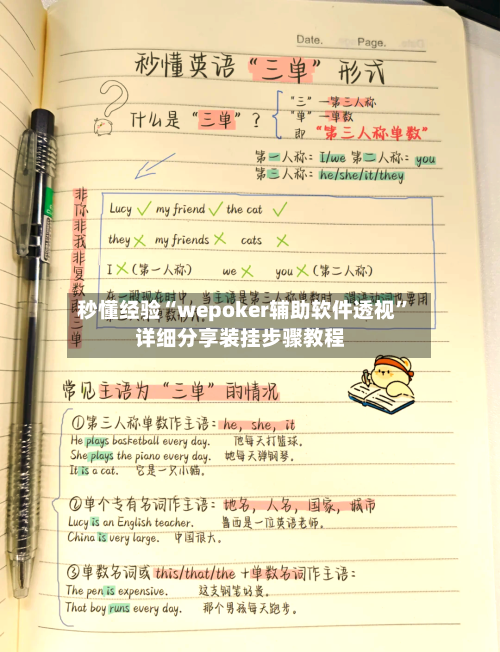 Date. Page.
秒懂英语“三单”形式
什么是“三单”？
“三”—第三人称
“单”—单数
即“第三人称单数”
第一人称：I/we 第二人称：you
第三人称：he/she/it/they
非你非我非复数即三单
Lucy ✓ my friend ✓ the cat ✓
they × my friends × cats ×
I ×（第一人称） we × you ×（第二人称）
在一般现在时中，当主语是第三人称单数时，谓语动词也要用
秒懂经验“wepoker辅助软件透视”
详细分享装挂步骤教程
常见主语为“三单”的情况
①第三人称单数作主语：he, she, it
He plays basketball every day. 他每天打篮球。
She plays the piano every day. 她每天弹钢琴。
It is a cat. 它是一只小猫。
②单个专有名词作主语：地名，人名，国家，城市
Lucy is an English teacher. 鲁西是一位英语老师。
China is very large. 中国很大。
③单数名词或 this/that/the + 单数名词作主语：
The pen is expensive. 这支钢笔好贵。
That boy runs every day. 那个男孩每天跑步。